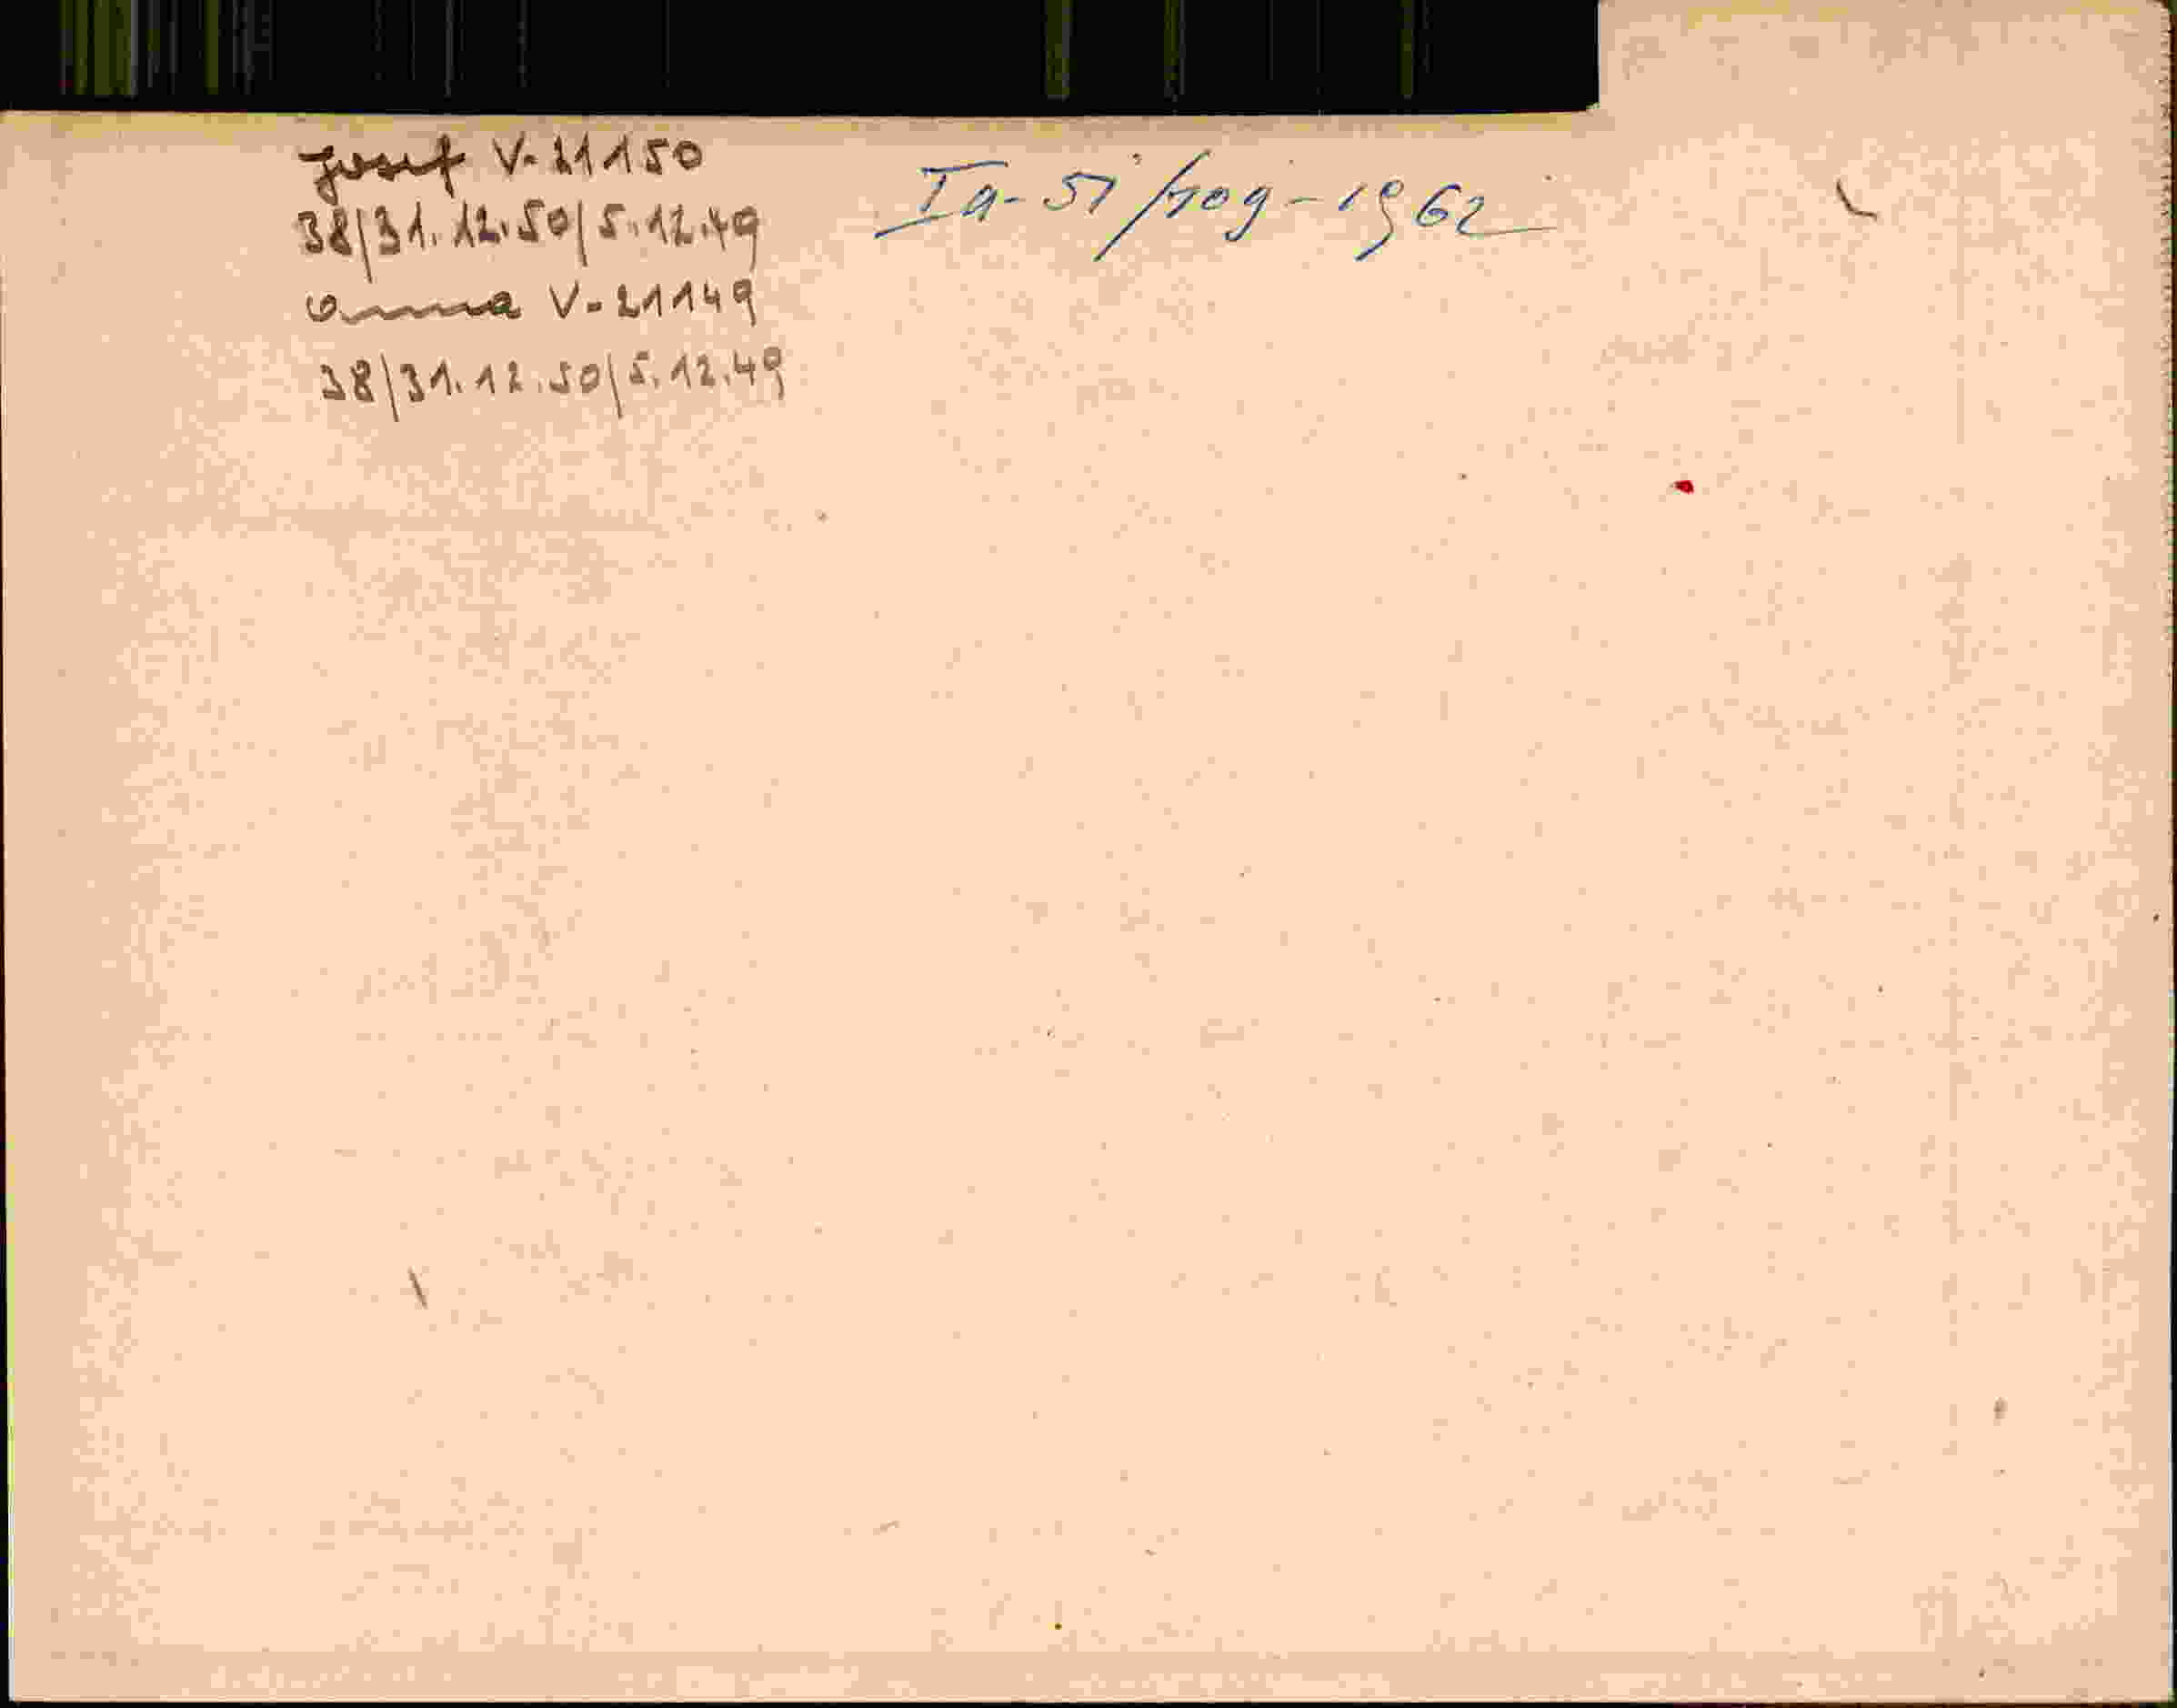 Josef V-21150
38/31.12.50/5.12.49
Anna V-21149
38/31.12.50/5.12.49
Ia-51/109-1962